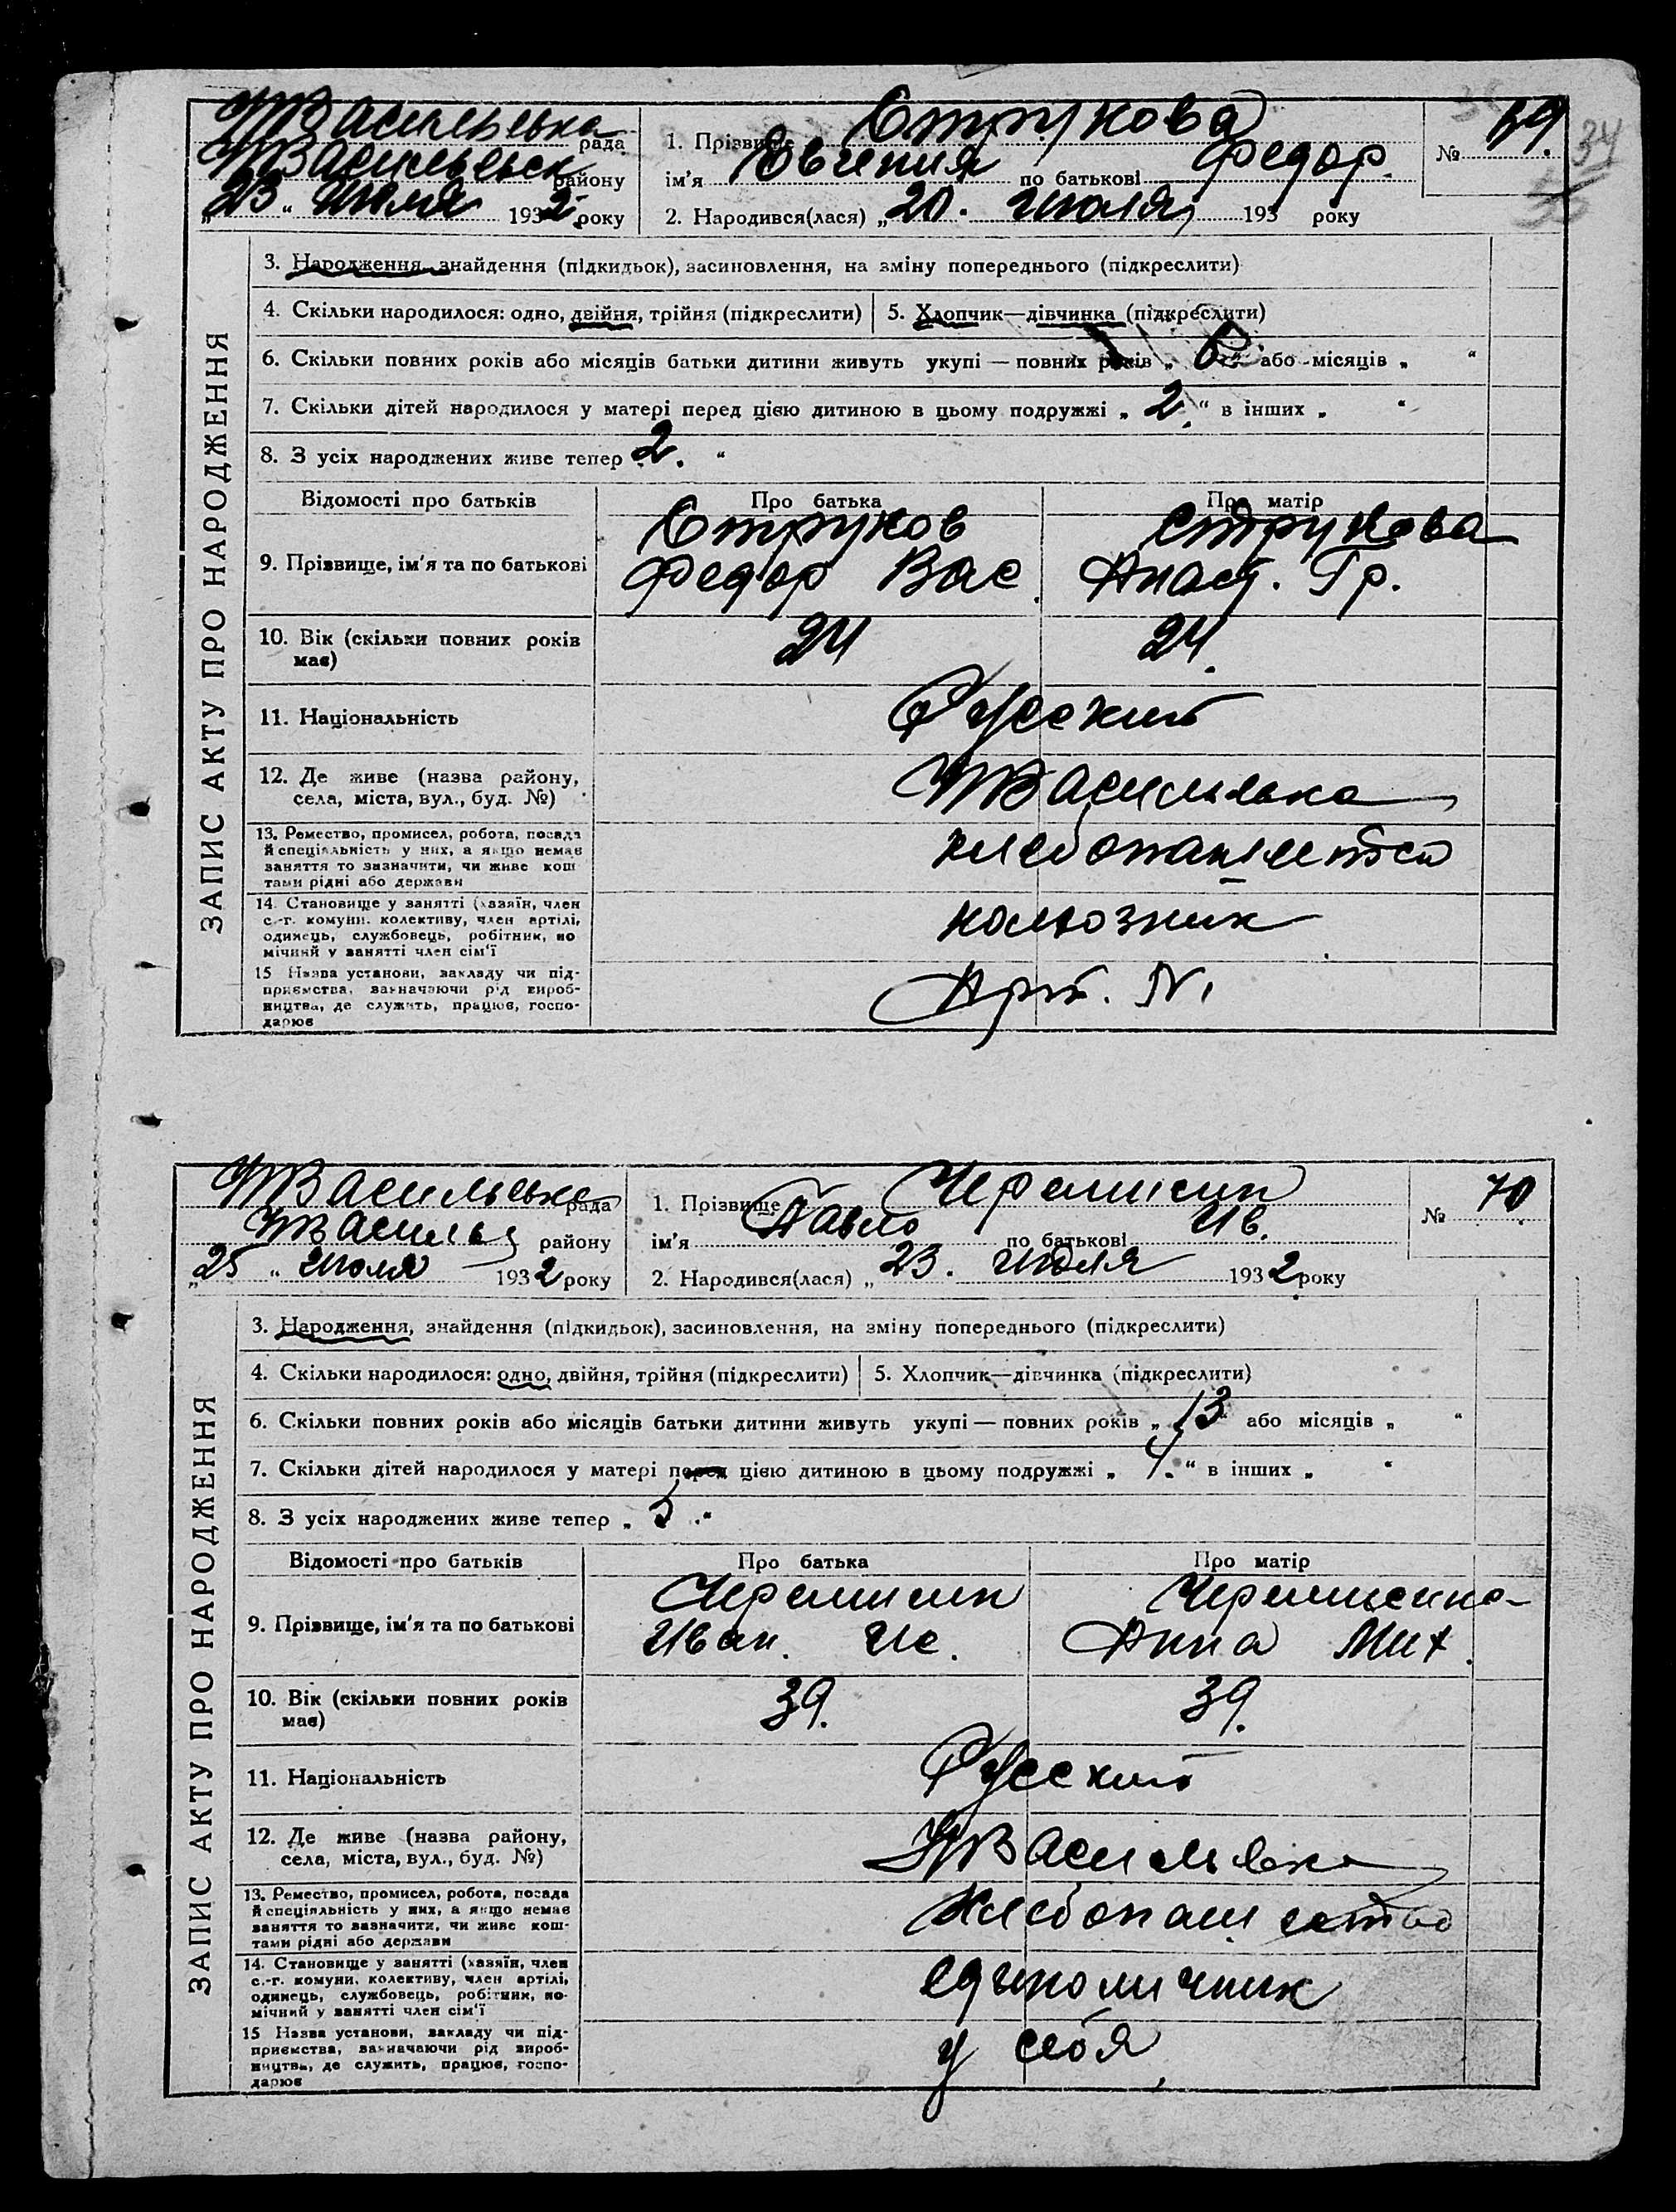 НВасильевка рада
НВасильевск району
„23“ Июля 1932 року
1. Прізвище Струкова
ім'я Евгения по батькові Федор.
2. Народився(лася) „20. Июля 193 року
№ 69.
34
ЗАПИС АКТУ ПРО НАРОДЖЕННЯ
3. Народження, знайдення (підкидьок), засиновлення, на зміну попереднього (підкреслити)
4. Скільки народилося: одно, двійня, трійня (підкреслити) 5. Хлопчик—дівчинка (підкреслити)
6. Скільки повних років або місяців батьки дитини живуть укупі — повних років „ 6 “ або місяців „ “
7. Скільки дітей народилося у матері перед цією дитиною в цьому подружжі „ 2. “ в інших „ “
8. З усіх народжених живе тепер „ 2. “
Відомості про батьків Про батька Про матір
9. Прізвище, ім'я та по батькові
Струков Струкова
Федор Вас. Анаст. Гр.
10. Вік (скільки повних років має) 24 24.
11. Національність Русский
12. Де живе (назва району, села, міста, вул., буд. №) НВасильевка
13. Ремество, промисел, робота, посада
й спеціяльність у них, а якщо немає
заняття то зазначити, чи живе кош-
тами рідні або держави
хлебопашество
14. Становище у занятті (хазяїн, член
с.-г. комуни, колективу, член артілі,
одинець, службовець, робітник, по-
мічний у занятті член сім'ї
колхозник
15 Назва установи, закладу чи під-
приємства, зазначаючи рід вироб-
ництва, де служить, працює, госпо-
дарює
Арт. №1
НВасильевка рада
НВасильев району
„25“ Июля 1932 року
1. Прізвище Черемисин
ім'я Павло по батькові Ив.
2. Народився(лася) „23. Июля 1932 року
№ 70
ЗАПИС АКТУ ПРО НАРОДЖЕННЯ
3. Народження, знайдення (підкидьок), засиновлення, на зміну попереднього (підкреслити)
4. Скільки народилося: одно, двійня, трійня (підкреслити) 5. Хлопчик—дівчинка (підкреслити)
6. Скільки повних років або місяців батьки дитини живуть укупі — повних років „ 13 “ або місяців „ “
7. Скільки дітей народилося у матері перед цією дитиною в цьому подружжі „ 4. “ в інших „ “
8. З усіх народжених живе тепер „ 5 “
Відомості про батьків Про батька Про матір
9. Прізвище, ім'я та по батькові
Черемисин Черемисина
Иван. Ис. Анна Мих.
10. Вік (скільки повних років має) 39. 39.
11. Національність Русский
12. Де живе (назва району, села, міста, вул., буд. №) НВасильевка
13. Ремество, промисел, робота, посада
й спеціяльність у них, а якщо немає
заняття то зазначити, чи живе кош-
тами рідні або держави
Хлебопашество
14. Становище у занятті (хазяїн, член
с.-г. комуни, колективу, член артілі,
одинець, службовець, робітник, по-
мічний у занятті член сім'ї
единоличник
15 Назва установи, закладу чи під-
приємства, зазначаючи рід вироб-
ництва, де служить, працює, госпо-
дарює
у себя